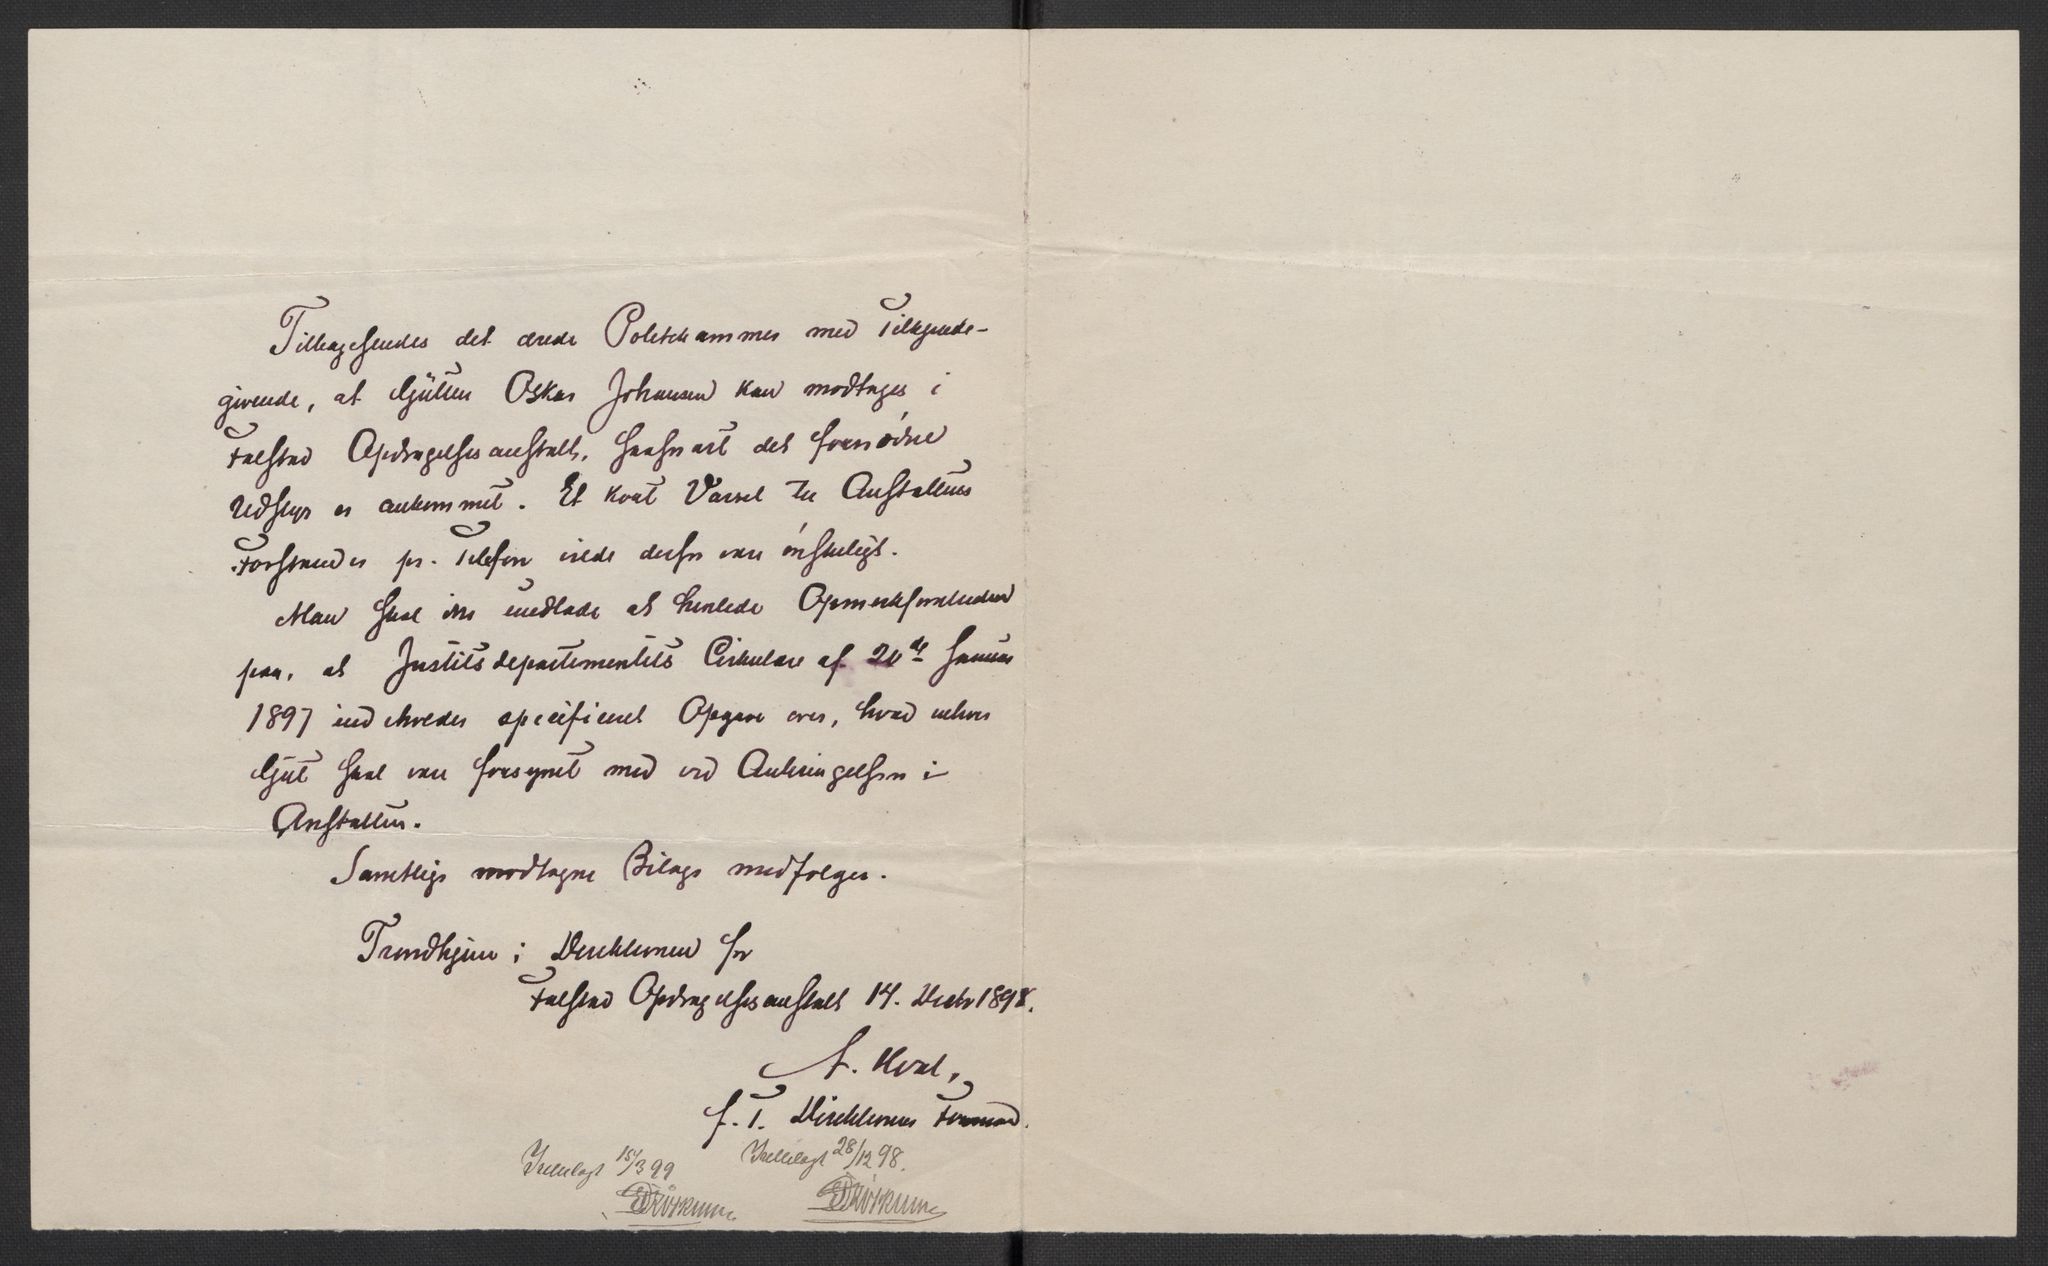 Tilbagesendes det ærede Politikammer med Tilkjende-
givende, at Gutten Oskar Johansen kan modtages i
Falstad Opdragelsesanstalt, saasnart det fornødne
Udstyr er ankommet. Et kort Varsel til Anstaltens
Forstander pr. Telefon vilde derfor være ønskeligt.
Man skal ikke undlade at henlede Opmerksomheden
paa, at Justitsdepartementets Cirkulære af 20de Januar
1897 indeholder specificeret Opgave over, hvad enhver
Gut skal være forsynet med ved Anbringelsen i
Anstalten.
Samtlige modtagne Bilage medfølger.
Trondhjem i Direktionen for
Falstad Opdragelsesanstalt 14. Decbr 1898.
A. Hval,
f. T. Direktionens Formand.
Irettelagt 15/3 99 Irettelagt 28/12 98.